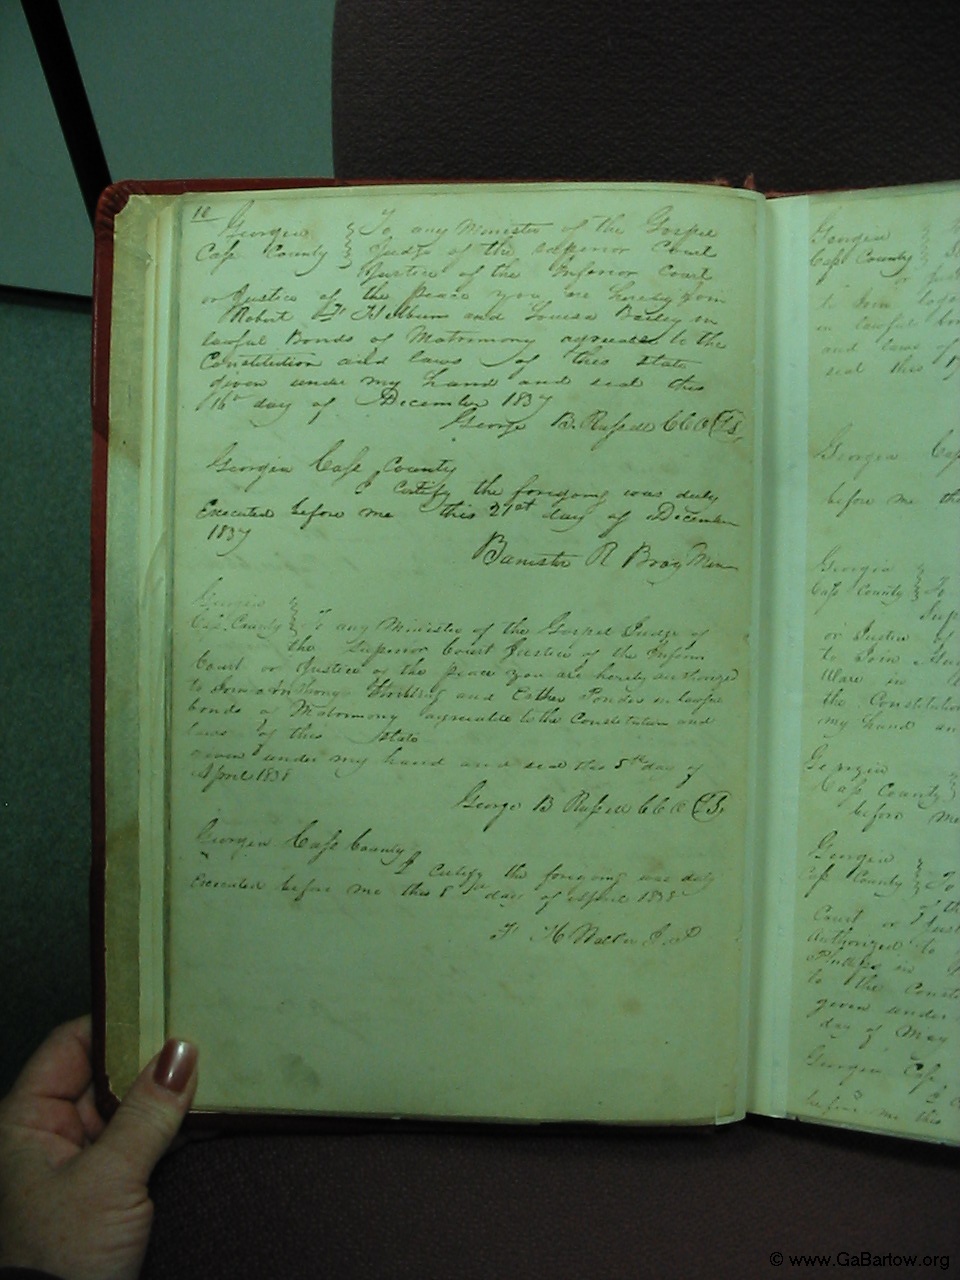 10
Georgia } To any Minister of the Gospel
Cass County } Judge of the superior Court
Justice of the Inferior Court
or Justice of the peace you are hereby Join
Robert and Louisa Bailey in
lawful Bonds of Matrimony agreeable to the
Constitution and laws of this state
given under my hand and seal this
16th day of December 1837
George B. Russell CCO (LS)
Georgia Cass County
I certify the foregoing was duly
Executed before me this 21st day of December
1837
Banister R Bray Min
Georgia }
Cass County } To any Minister of the Gospel Judge of
the Superior Court Justice of the Inferior
Court or Justice of the peace you are hereby authorized
to Join and Esther Ponder in lawful
bonds of Matrimony agreeable to the Constitution and
laws of this state
given under my hand and seal this 5th day of
April 1838
George B Russell CCO (LS)
Georgia Cass County
I certify the foregoing was duly
Executed before me this 8th day of April 1838
H Walker J P
Georgia }
Cass County }
to Join
in lawful
and laws of
seal this
Georgia Cass
before me this
Georgia }
Cass County } To
or Justice of
to Join
Ware in
the Constitution
my hand an
Georgia }
Cass County }
before me
Georgia }
Cass County } To
of the
Court or Just
Authorized to
in
to the Const
given under
day of May
Georgia Cass
I C
before me this
© www.GaBartow.org